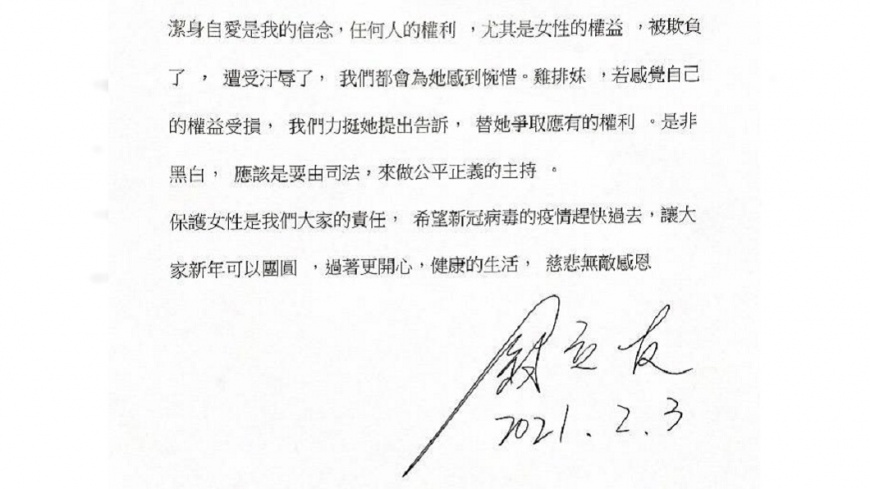 潔身自愛是我的信念，任何人的權利 ，尤其是女性的權益 ，被欺負
了 ， 遭受汙辱了， 我們都會為她感到惋惜。雞排妹 ，若感覺自己
的權益受損， 我們力挺她提出告訴， 替她爭取應有的權利 。是非
黑白， 應該是要由司法，來做公平正義的主持 。
保護女性是我們大家的責任， 希望新冠病毒的疫情趕快過去，讓大
家新年可以團圓 ，過著更開心，健康的生活， 慈悲無敵感恩
友
2021.2.3